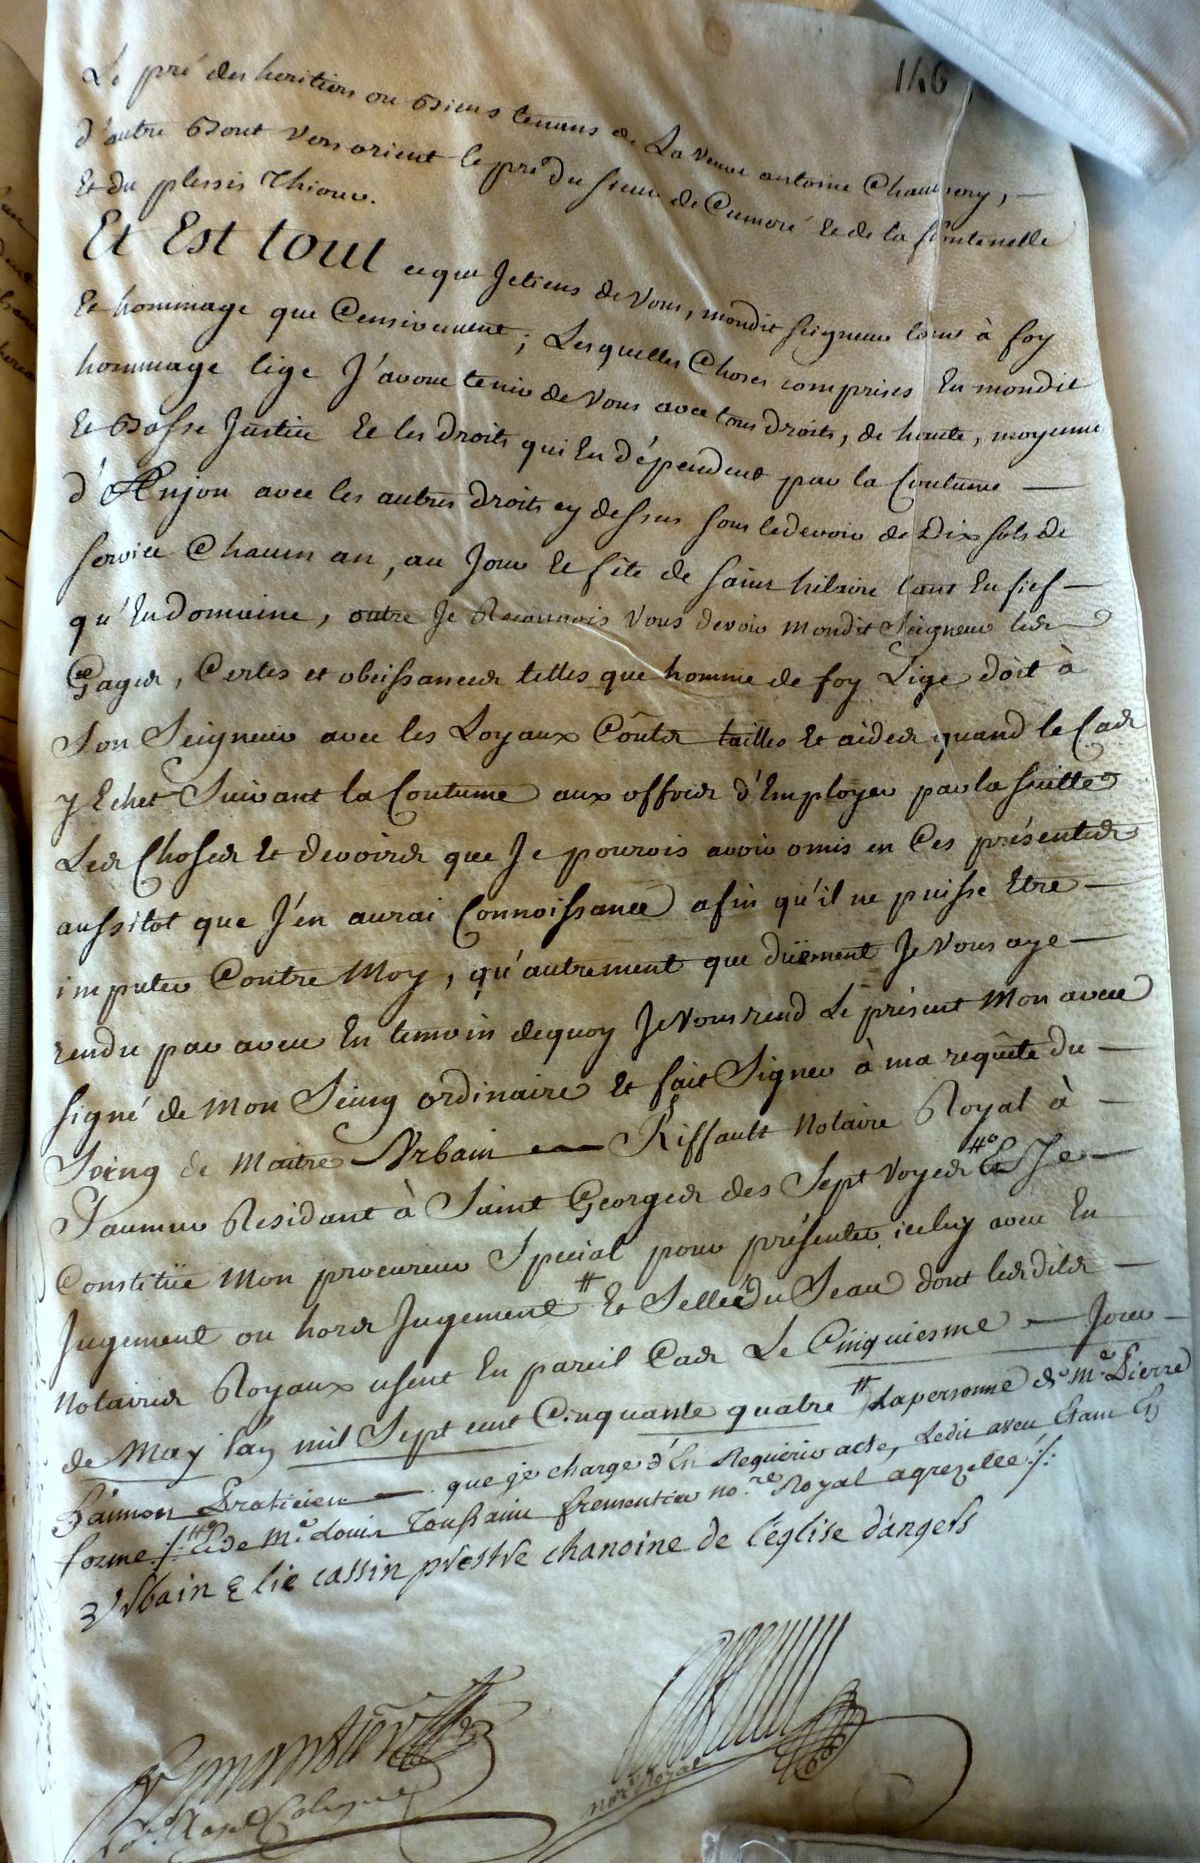 146
Le pré des heritiers ou Biens tenans de La veuve antoine
d'autre Bout vers orient le pré du sieur de Cumoré Et de la fontenelle
Et du plessis Thiour.
Et Est tout ce que Je tiens de Vous, mondit seigneur tant à foy
Et hommage que Censivement; Lesquelles Choses comprises En mondit
hommage lige J'avoue tenir de Vous avec tous droits, de haute, moyenne
Et Basse Justice Et les droits qui En dépendent par la Coutume —
d'Anjou avec les autres droits cy dessus sous le devoir de Dix sols de
service Chacun an, au Jour Et fête de saint hilaire tant En fief —
qu'En domaine, outre Je Reconnois Vous devoir mondit Seigneur les
Gages, Certes et obeissances telles que homme de foy Lige doit à
Son Seigneur avec les Loyaux Coûts tailles Et aides quand le Cas
y Echet Suivant la Coutume aux offres d'Employer par la suitte
Les Choses Et devoirs que Je pourois avoir omis en Ces présentes
aussitot que J'en aurai Connoissance afin qu'il ne puisse Etre —
imputer Contre Moy, qu'autrement que düement Je Vous aye —
rendu par aveu En temoin de quoy Je Vous rend Le présent Mon aveu
signé de Mon Seing ordinaire Et fait Signer à ma requête du —
Seing de Maitre Urbain — Riffault Notaire Royal à —
Saumur Residant à Saint Georges des Sept Voyes # Et Je —
Constitüe Mon procureur Special pour présenter iceluy aveu En
Jugement ou hors Jugement # Et Sellé du Seau dont lesdits —
Notaires Royaux usent En pareil Cas Le Cinquiesme — Jour —
de May l'an mil Sept cent Cinquante quatre # La personne de Me Pierre
Praticien — que je charge d'En Requerir acte, Ledit aveu Etant En
forme /: # Et de Me Louis Toussaint frementier no.re Royal :/:
Urbain Elie cassin prestre chanoine de l'église d'angers
Royal